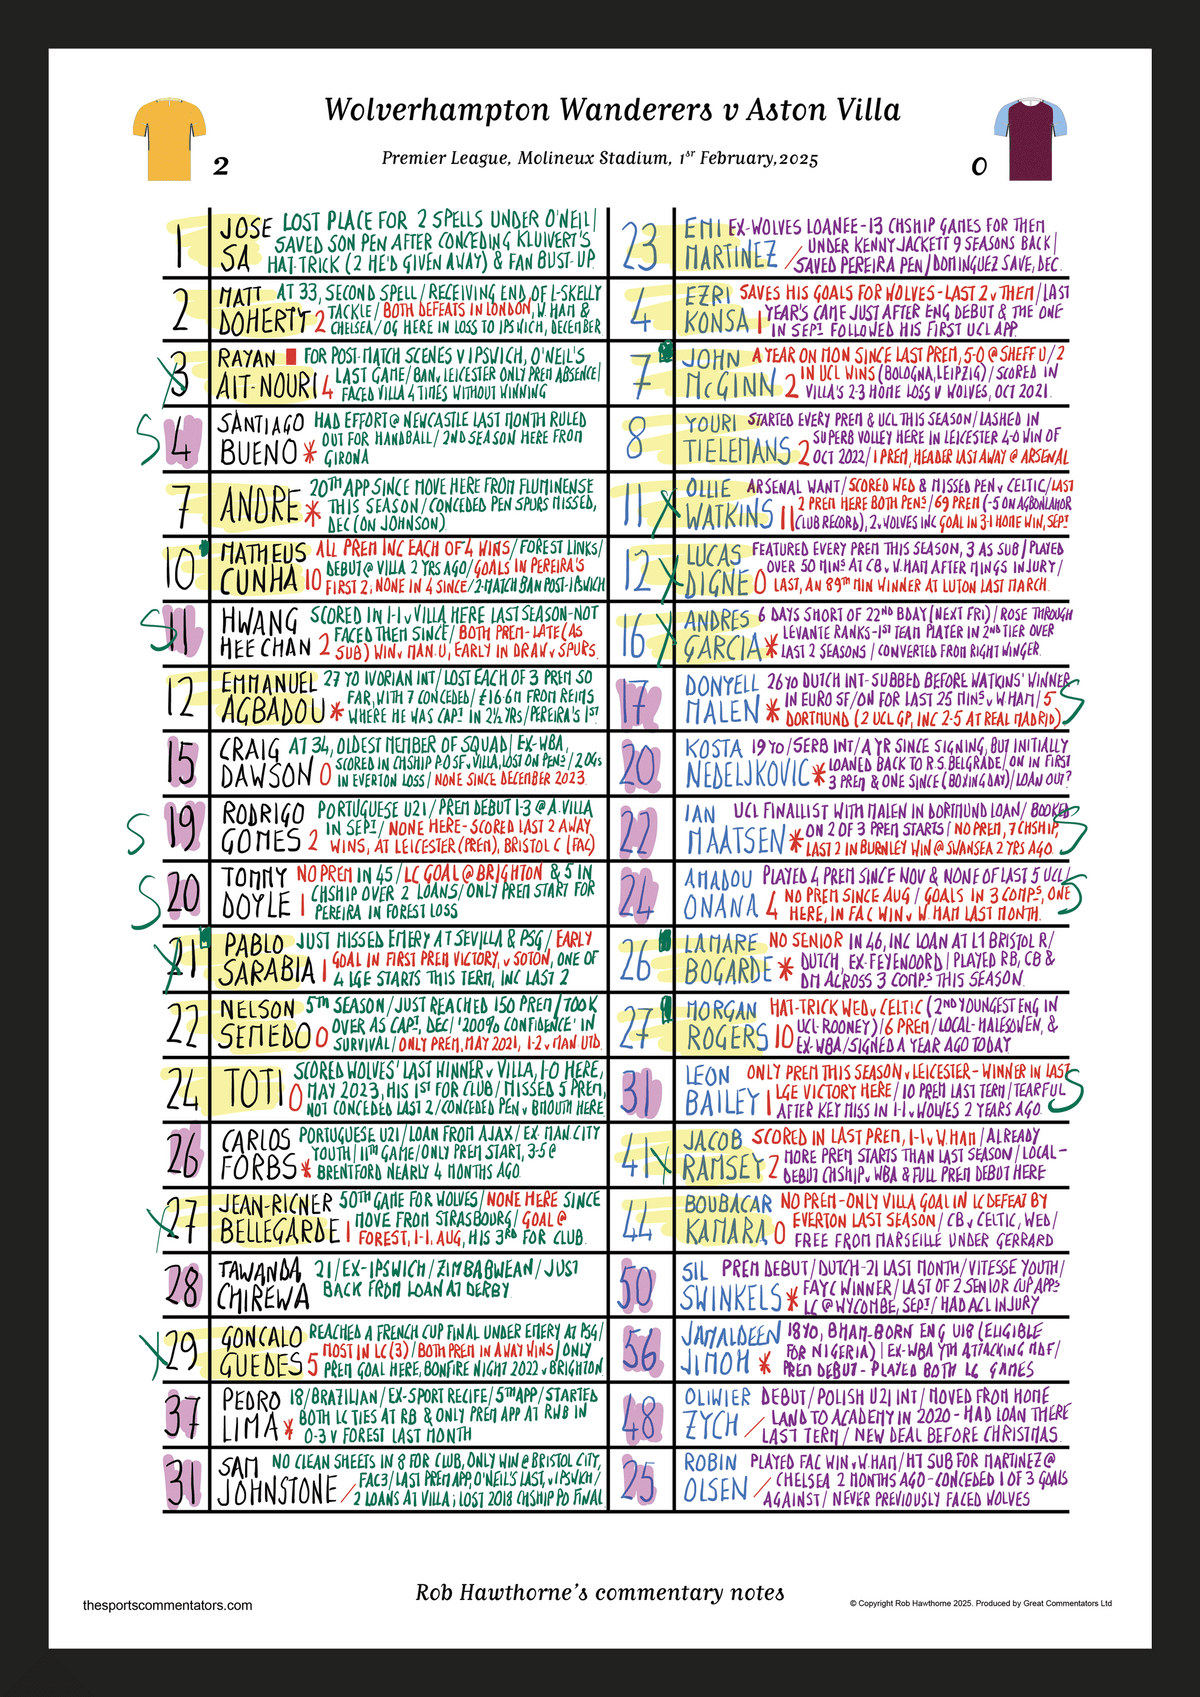 Wolverhampton Wanderers v Aston Villa
Premier League, Molineux Stadium, 1st February, 2025
2
0
1
JOSE SA
LOST PLACE FOR 2 SPELLS UNDER O'NEIL/
SAVED SON PEN AFTER CONCEDING KLUIVERT'S
HAT-TRICK (2 HE'D GIVEN AWAY) & FAN BUST-UP.
2
MATT DOHERTY 2
AT 33, SECOND SPELL/RECEIVING END OF L-SKELLY
TACKLE/BOTH DEFEATS IN LONDON, W.HAM &
CHELSEA/OG HERE IN LOSS TO IPSWICH, DECEMBER
3
RAYAN AIT-NOURI 4
FOR POST-MATCH SCENES V IPSWICH, O'NEIL'S
LAST GAME/BAN v LEICESTER ONLY PREM ABSENCE/
FACED VILLA 4 TIMES WITHOUT WINNING
S
4
SANTIAGO BUENO *
HAD EFFORT @ NEWCASTLE LAST MONTH RULED
OUT FOR HANDBALL/2ND SEASON HERE FROM
GIRONA
7
ANDRE *
20TH APP SINCE MOVE HERE FROM FLUMINENSE
THIS SEASON/CONCEDED PEN SPURS MISSED,
DEC (ON JOHNSON)
10
MATHEUS CUNHA 10
ALL PREM INC EACH OF 4 WINS/FOREST LINKS/
DEBUT @ VILLA 2 YRS AGO/GOALS IN PEREIRA'S
FIRST 2; NONE IN 4 SINCE/2-MATCH BAN POST-IPSWICH
S
11
HWANG HEE CHAN 2
SCORED IN 1-1 v VILLA HERE LAST SEASON-NOT
FACED THEM SINCE/BOTH PREM-LATE (AS
SUB) WIN v MAN.U, EARLY IN DRAW v SPURS.
12
EMMANUEL AGBADOU *
27 YO IVORIAN INT/LOST EACH OF 3 PREM SO
FAR, WITH 7 CONCEDED/£16.6M FROM REIMS
WHERE HE WAS CAPT IN 2½ YRS/PEREIRA'S 1ST
15
CRAIG DAWSON 0
AT 34, OLDEST MEMBER OF SQUAD/EX-WBA,
SCORED IN CHSHIP PO SF v VILLA, LOST ON PENS/2 OGS
IN EVERTON LOSS/NONE SINCE DECEMBER 2023
S
19
RODRIGO GOMES 2
PORTUGUESE U21/PREM DEBUT 1-3 @ A.VILLA
IN SEPT/NONE HERE-SCORED LAST 2 AWAY
WINS, AT LEICESTER (PREM), BRISTOL C (FAC)
S
20
TOMMY DOYLE 1
NO PREM IN 45/LC GOAL @ BRIGHTON & 5 IN
CHSHIP OVER 2 LOANS/ONLY PREM START FOR
PEREIRA IN FOREST LOSS
21
PABLO SARABIA 1
JUST MISSED EMERY AT SEVILLA & PSG/EARLY
GOAL IN FIRST PREM VICTORY, v SOTON, ONE OF
4 LGE STARTS THIS TERM, INC LAST 2
22
NELSON SEMEDO 0
5TH SEASON/JUST REACHED 150 PREM/TOOK
OVER AS CAPT, DEC/'200% CONFIDENCE' IN
SURVIVAL/ONLY PREM, MAY 2021, 1-2 v MAN UTD.
24
TOTI 0
SCORED WOLVES' LAST WINNER v VILLA, 1-0 HERE,
MAY 2023, HIS 1ST FOR CLUB/MISSED 5 PREM,
NOT CONCEDED LAST 2/CONCEDED PEN v B'MOUTH HERE
26
CARLOS FORBS *
PORTUGUESE U21/LOAN FROM AJAX/EX-MAN.CITY
YOUTH/11TH GAME/ONLY PREM START, 3-5 @
BRENTFORD NEARLY 4 MONTHS AGO
27
JEAN-RICNER BELLEGARDE 1
50TH GAME FOR WOLVES/NONE HERE SINCE
MOVE FROM STRASBOURG/GOAL @
FOREST, 1-1, AUG, HIS 3RD FOR CLUB
28
TAWANDA CHIREWA
21/EX-IPSWICH/ZIMBABWEAN/JUST
BACK FROM LOAN AT DERBY
29
GONCALO GUEDES 5
REACHED A FRENCH CUP FINAL UNDER EMERY AT PSG/
MOST IN LC (3)/BOTH PREM IN AWAY WINS/ONLY
PREM GOAL HERE, BONFIRE NIGHT 2022 v BRIGHTON
37
PEDRO LIMA *
18/BRAZILIAN/EX-SPORT RECIFE/5TH APP/STARTED
BOTH LC TIES AT RB & ONLY PREM APP AT RWB IN
0-3 v FOREST LAST MONTH
31
SAM JOHNSTONE /
NO CLEAN SHEETS IN 8 FOR CLUB, ONLY WIN @ BRISTOL CITY,
FAC3/LAST PREM APP, O'NEIL'S LAST, v IPSWICH/
2 LOANS AT VILLA; LOST 2018 CHSHIP PO FINAL
23
EMI MARTINEZ /
EX-WOLVES LOANEE-13 CHSHIP GAMES FOR THEM
UNDER KENNY JACKETT 9 SEASONS BACK/
SAVED PEREIRA PEN/DOMINGUEZ SAVE, DEC.
4
EZRI KONSA 1
SAVES HIS GOALS FOR WOLVES-LAST 2 v THEM/LAST
YEAR'S CAME JUST AFTER ENG DEBUT & THE ONE
IN SEPT FOLLOWED HIS FIRST UCL APP
7
JOHN McGINN 2
A YEAR ON MON SINCE LAST PREM, 5-0 @ SHEFF U/2
IN UCL WINS (BOLOGNA, LEIPZIG)/SCORED IN
VILLA'S 2-3 HOME LOSS v WOLVES, OCT 2021.
8
YOURI TIELEMANS 2
STARTED EVERY PREM & UCL THIS SEASON/LASHED IN
SUPERB VOLLEY HERE IN LEICESTER 4-0 WIN OF
OCT 2022/1 PREM, HEADER LAST AWAY @ ARSENAL
11
OLLIE WATKINS 11
ARSENAL WANT/SCORED WED & MISSED PEN v CELTIC/LAST
2 PREM HERE BOTH PENS/69 PREM (-5 ON AGBONLAHOR
(CLUB RECORD), 2 v WOLVES INC GOAL IN 3-1 HOME WIN, SEPT
12
LUCAS DIGNE 0
FEATURED EVERY PREM THIS SEASON, 3 AS SUB/PLAYED
OVER 50 MINS AT CB v W.HAM AFTER MINGS INJURY/
LAST, AN 89TH MIN WINNER AT LUTON LAST MARCH
16
ANDRES GARCIA *
6 DAYS SHORT OF 22ND BDAY (NEXT FRI)/ROSE THROUGH
LEVANTE RANKS-1ST TEAM PLAYER IN 2ND TIER OVER
LAST 2 SEASONS/CONVERTED FROM RIGHT WINGER.
17
DONYELL MALEN *
26 YO DUTCH INT-SUBBED BEFORE WATKINS' WINNER
IN EURO SF/ON FOR LAST 25 MINS v W.HAM/5
DORTMUND (2 UCL GP, INC 2-5 AT REAL MADRID)
S
20
KOSTA NEDELJKOVIC *
19 YO/SERB INT/A YR SINCE SIGNING, BUT INITIALLY
LOANED BACK TO R.S. BELGRADE/ON IN FIRST
3 PREM & ONE SINCE (BOXING DAY)/LOAN OUT?
22
IAN MAATSEN *
UCL FINALLIST WITH MALEN IN DORTMUND LOAN/BOOKED
ON 2 OF 3 PREM STARTS/NO PREM, 7 CHSHIP,
LAST 2 IN BURNLEY WIN @ SWANSEA 2 YRS AGO
S
24
AMADOU ONANA 4
PLAYED 4 PREM SINCE NOV & NONE OF LAST 5 UCL/
NO PREM SINCE AUG/GOALS IN 3 COMPS, ONE
HERE, IN FAC WIN v W.HAM LAST MONTH.
S
26
LAMARE BOGARDE *
NO SENIOR IN 46, INC LOAN AT L1 BRISTOL R/
DUTCH, EX-FEYENOORD/PLAYED RB, CB &
DM ACROSS 3 COMPS THIS SEASON.
27
MORGAN ROGERS 10
HAT-TRICK WED v CELTIC (2ND YOUNGEST ENG IN
UCL-ROONEY)/6 PREM/LOCAL-HALESOWEN, &
EX-WBA/SIGNED A YEAR AGO TODAY
31
LEON BAILEY 1
ONLY PREM THIS SEASON v LEICESTER-WINNER IN LAST
LGE VICTORY HERE/10 PREM LAST TERM/TEARFUL
AFTER KEY MISS IN 1-1 v WOLVES 2 YEARS AGO.
S
41
JACOB RAMSEY 2
SCORED IN LAST PREM, 1-1 v W.HAM/ALREADY
MORE PREM STARTS THAN LAST SEASON/LOCAL-
DEBUT CHSHIP v WBA & FULL PREM DEBUT HERE
44
BOUBACAR KAMARA 0
NO PREM-ONLY VILLA GOAL IN LC DEFEAT BY
EVERTON LAST SEASON/CB v CELTIC, WED/
FREE FROM MARSEILLE UNDER GERRARD
50
SIL SWINKELS *
PREM DEBUT/DUTCH-21 LAST MONTH/VITESSE YOUTH/
FAYC WINNER/LAST OF 2 SENIOR CUP APPS
LC @ WYCOMBE, SEPT/HAD ACL INJURY
56
JAMALDEEN JIMOH *
18 YO, BHAM-BORN ENG U18 (ELIGIBLE
FOR NIGERIA)/EX-WBA YTH ATTACKING MDF/
PREM DEBUT-PLAYED BOTH LC GAMES
48
OLIWIER ZYCH /
DEBUT/POLISH U21 INT/MOVED FROM HOME
LAND TO ACADEMY IN 2020-HAD LOAN THERE
LAST TERM/NEW DEAL BEFORE CHRISTMAS.
25
ROBIN OLSEN /
PLAYED FAC WIN v W.HAM/HT SUB FOR MARTINEZ @
CHELSEA 2 MONTHS AGO-CONCEDED 1 OF 3 GOALS
AGAINST/NEVER PREVIOUSLY FACED WOLVES
Rob Hawthorne's commentary notes
thesportscommentators.com
© Copyright Rob Hawthorne 2025. Produced by Great Commentators Ltd